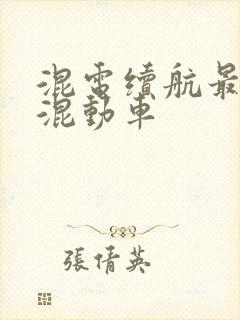 混電續航最
混動車
張倩英